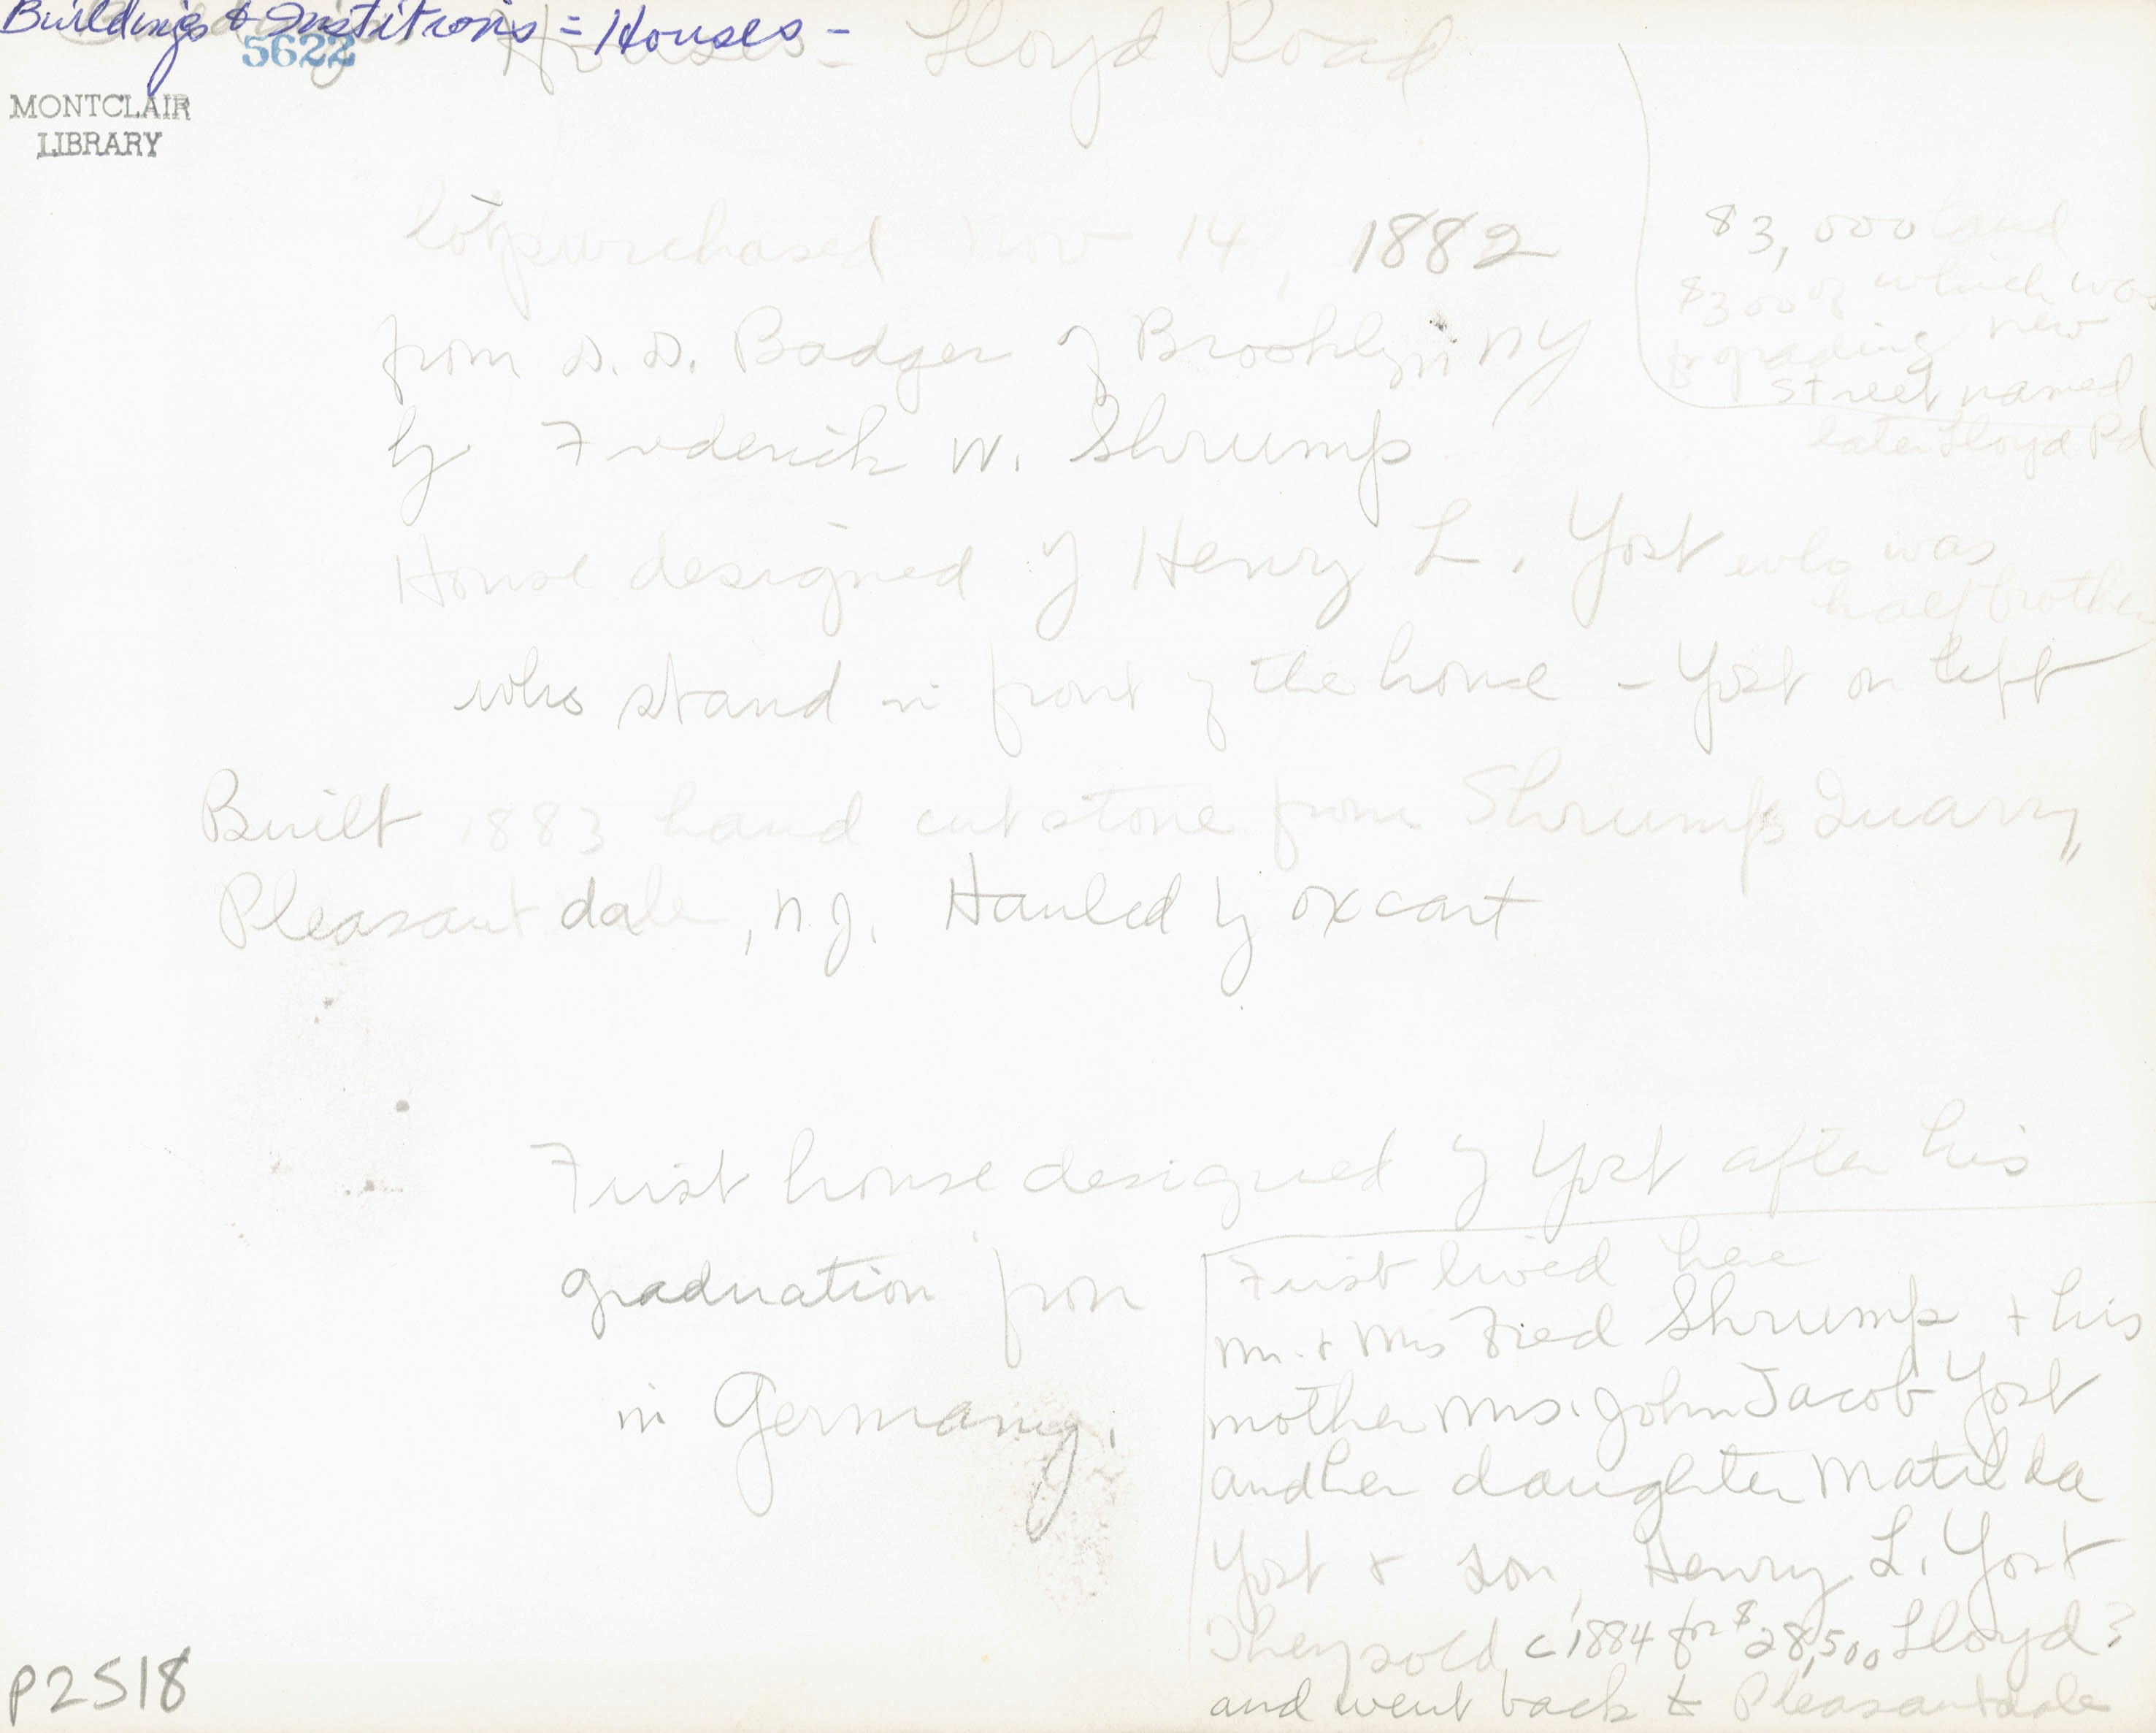 Buildings & Institions = Houses -
Houses - Lloyd Road
5622
MONTCLAIR
LIBRARY
lot purchased Nov 14, 1882
from D. D. Badger of Brooklyn NY
by Frederick W. Shrump
$3,000 land
$300 of which was
for grading new
street named
later Lloyd Rd
House designed by Henry L. Yost who was
half brother
who stand in front of the house - Yost on left
Built 1883 hand cut stone from Shrump's Quarry,
Pleasantdale, N.J. Hauled by oxcart
First house designed by Yost after his
graduation from
in Germany.
First lived here
Mr. & Mrs Fred Shrump + his
mother Mrs. John Jacob Yost
and her daughter Matilda
Yost & son, Henry L. Yost
They sold c 1884 for $28,500 Lloyd?
and went back to Pleasantdale
P2518